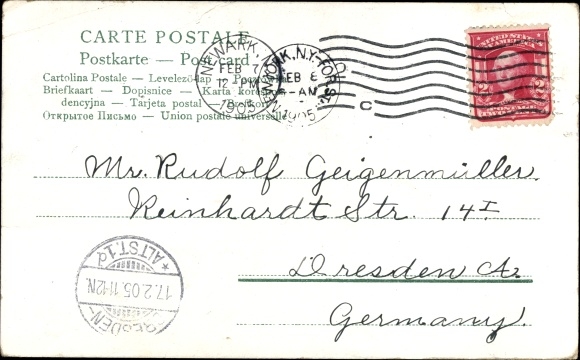 CARTE POSTALE
Postkarte — Post card
Cartolina Postale — Levelező-lap —
Briefkaart — Dopisnice — Karta korespon-
dencyjna — Tarjeta postal —
Открытое Письмо — Union postale universelle
NEWARK, N.J.
FEB
12 PM
1905
NEW YORK, N.Y.
FEB 8
AM
1905
C
UNITED STATES
OF AMERICA
2 2
Mr. Rudolf Geigenmüller.
Reinhardt Str. 14 I
Dresden A.
Germany.
DRESDEN-
17.2.05. 11-12N.
* ALTST. 1 d